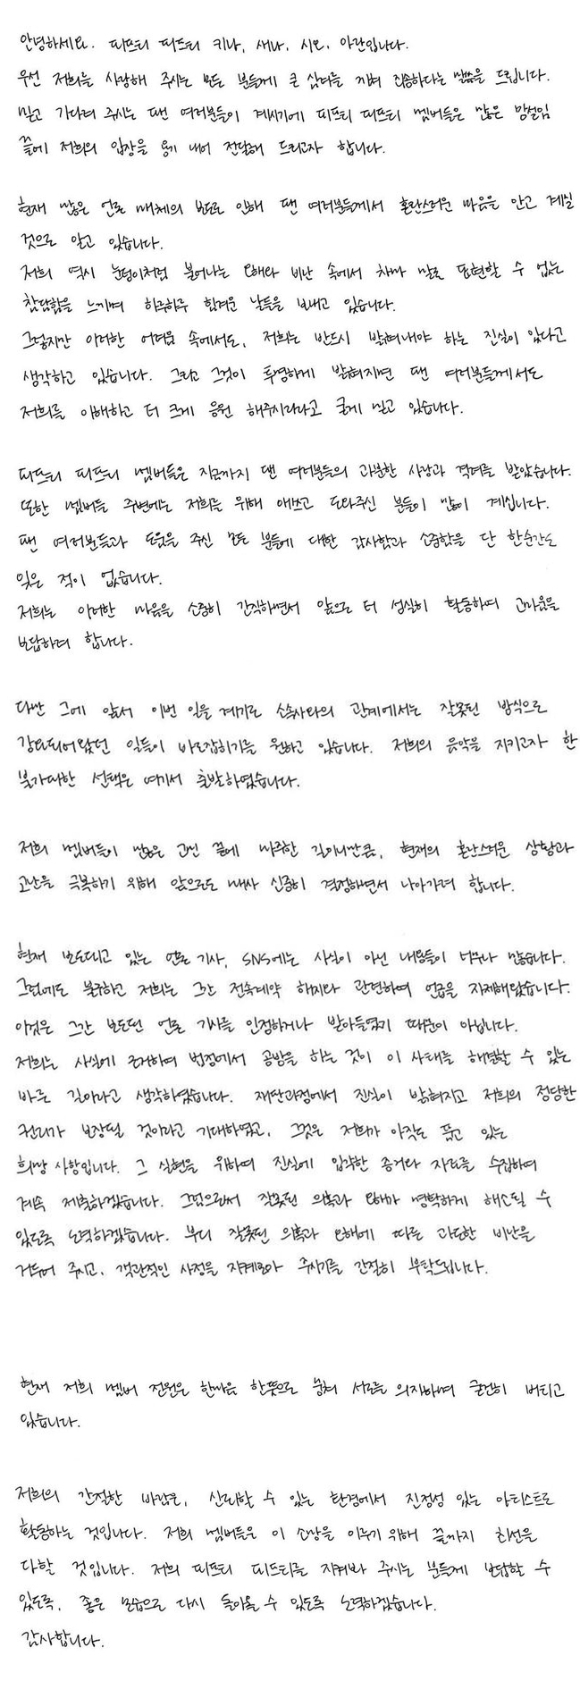 안녕하세요. 피프티 피프티 키나, 새나, 시오, 아란입니다.
우선 저희를 사랑해 주시는 모든 분들께 큰 심려를 끼쳐 죄송하다는 말씀을 드립니다.
믿고 기다려 주시는 팬 여러분들이 계시기에 피프티 피프티 멤버들은 많은 망설임
끝에 저희의 입장을 용기 내어 전달해 드리고자 합니다.
현재 많은 언론 매체의 보도로 인해 팬 여러분들께서 혼란스러운 마음을 안고 계실
것으로 알고 있습니다.
저희 역시 눈덩이처럼 불어나는 오해와 비난 속에서 차마 말로 표현할 수 없는
참담함을 느끼며 하루하루 힘겨운 날들을 보내고 있습니다.
그렇지만 이러한 어려움 속에서도, 저희는 반드시 밝혀내야 하는 진실이 있다고
생각하고 있습니다. 그리고 그것이 투명하게 밝혀지면 팬 여러분들께서도
저희를 이해하고 더 크게 응원 해주시리라고 굳게 믿고 있습니다.
피프티 피프티 멤버들은 지금까지 팬 여러분들의 과분한 사랑과 격려를 받았습니다.
또한 멤버들 주변에는 저희를 위해 애쓰고 도와주신 분들이 많이 계십니다.
팬 여러분들과 도움을 주신 모든 분들에 대한 감사함과 소중함을 단 한순간도
잊은 적이 없습니다.
저희는 이러한 마음을 소중히 간직하면서 앞으로 더 성실히 활동하며 고마움을
보답하려 합니다.
다만 그에 앞서 이번 일을 계기로 소속사와의 관계에서는 잘못된 방식으로
강요되어왔던 일들이 바로잡히기를 원하고 있습니다. 저희의 음악을 지키고자 한
불가피한 선택은 여기서 출발하였습니다.
저희 멤버들이 많은 고민 끝에 마주한 길이니만큼, 현재의 혼란스러운 상황과
고난을 극복하기 위해 앞으로도 매사 신중히 결정하면서 나아가려 합니다.
현재 보도되고 있는 언론 기사, SNS에는 사실이 아닌 내용들이 너무나 많습니다.
그럼에도 불구하고 저희는 그간 전속계약 해지와 관련하여 언급을 자제해왔습니다.
이것은 그간 보도된 언론 기사를 인정하거나 받아들였기 때문이 아닙니다.
저희는 사실에 근거하여 법정에서 공방을 하는 것이 이 사태를 해결할 수 있는
바른 길이라고 생각하였습니다. 재판과정에서 진실이 밝혀지고 저희의 정당한
권리가 보장될 것이라고 기대하였고, 그것은 저희가 아직도 품고 있는
희망 사항입니다. 그 실현을 위하여 진실에 입각한 증거와 자료를 수집하여
계속 제출하겠습니다. 그럼으로써 잘못된 의혹과 오해가 명확하게 해소될 수
있도록 노력하겠습니다. 부디 잘못된 의혹과 오해에 따른 과도한 비난을
거두어 주시고, 객관적인 사정을 지켜보아 주시기를 간절히 부탁드립니다.
현재 저희 멤버 전원은 한마음 한뜻으로 뭉쳐 서로를 의지하며 굳건히 버티고
있습니다.
저희의 간절한 바람은, 신뢰할 수 있는 환경에서 진정성 있는 아티스트로
활동하는 것입니다. 저희 멤버들은 이 소망을 이루기 위해 끝까지 최선을
다할 것입니다. 저희 피프티 피프티를 지켜봐 주시는 분들께 보답할 수
있도록, 좋은 모습으로 다시 돌아올 수 있도록 노력하겠습니다.
감사합니다.